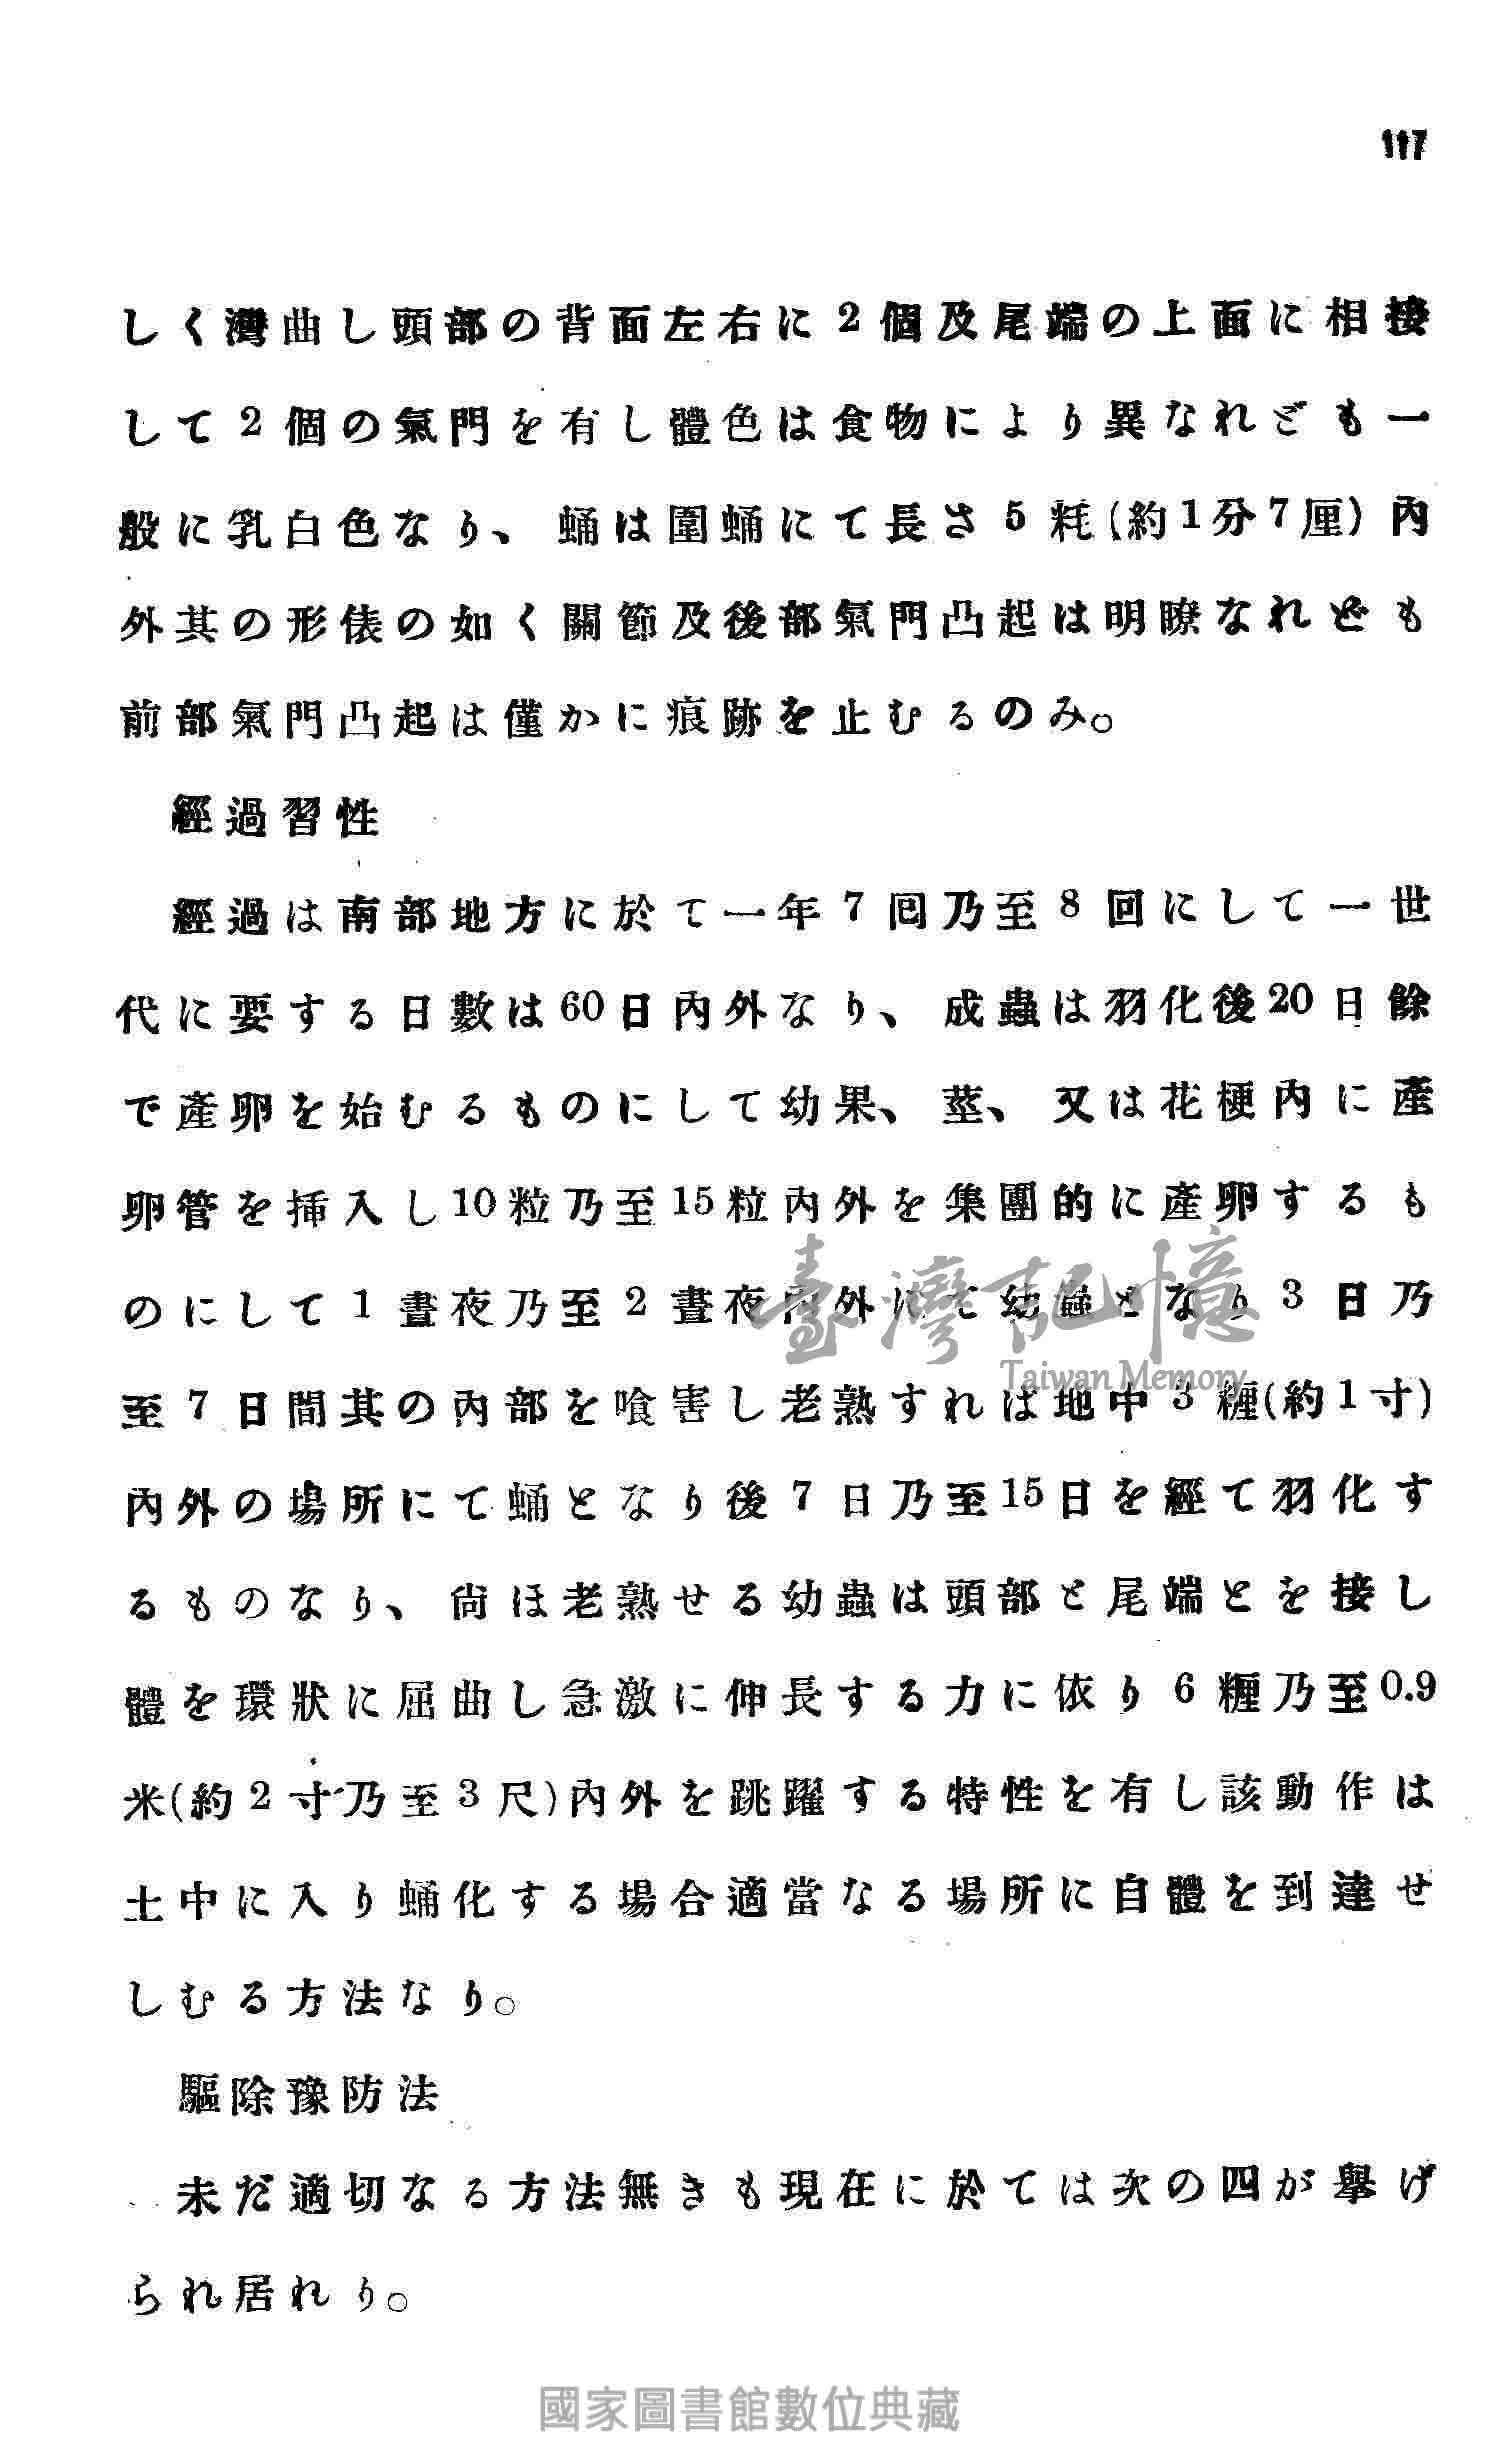 117
しく灣曲し頭部の背面左右に2個及尾端の上面に相接
して2個の氣門を有し體色は食物により異なれども一
般に乳白色なり、蛹は圍蛹にて長さ5粍(約1分7厘)內
外其の形俵の如く關節及後部氣門凸起は明瞭なれども
前部氣門凸起は僅かに痕跡を止むるのみ。
經過習性
經過は南部地方に於て一年7回乃至8回にして一世
代に要する日數は60日內外なり、成蟲は羽化後20日餘
で產卵を始むるものにして幼果、莖、又は花梗內に產
卵管を揷入し10粒乃至15粒內外を集團的に產卵するも
のにして1晝夜乃至2晝夜內外にて幼蟲となり3日乃
至7日間其の內部を喰害し老熟すれば地中3糎(約1寸)
內外の場所にて蛹となり後7日乃至15日を經て羽化す
るものなり、尙ほ老熟せる幼蟲は頭部と尾端とを接し
體を環狀に屈曲し急激に伸長する力に依り6糎乃至0.9
米(約2寸乃至3尺)內外を跳躍する特性を有し該動作は
土中に入り蛹化する場合適當なる場所に自體を到達せ
しむる方法なり。
驅除豫防法
未だ適切なる方法無きも現在に於ては次の四が擧げ
られ居れり。
臺灣記憶
Taiwan Memory
國家圖書館數位典藏